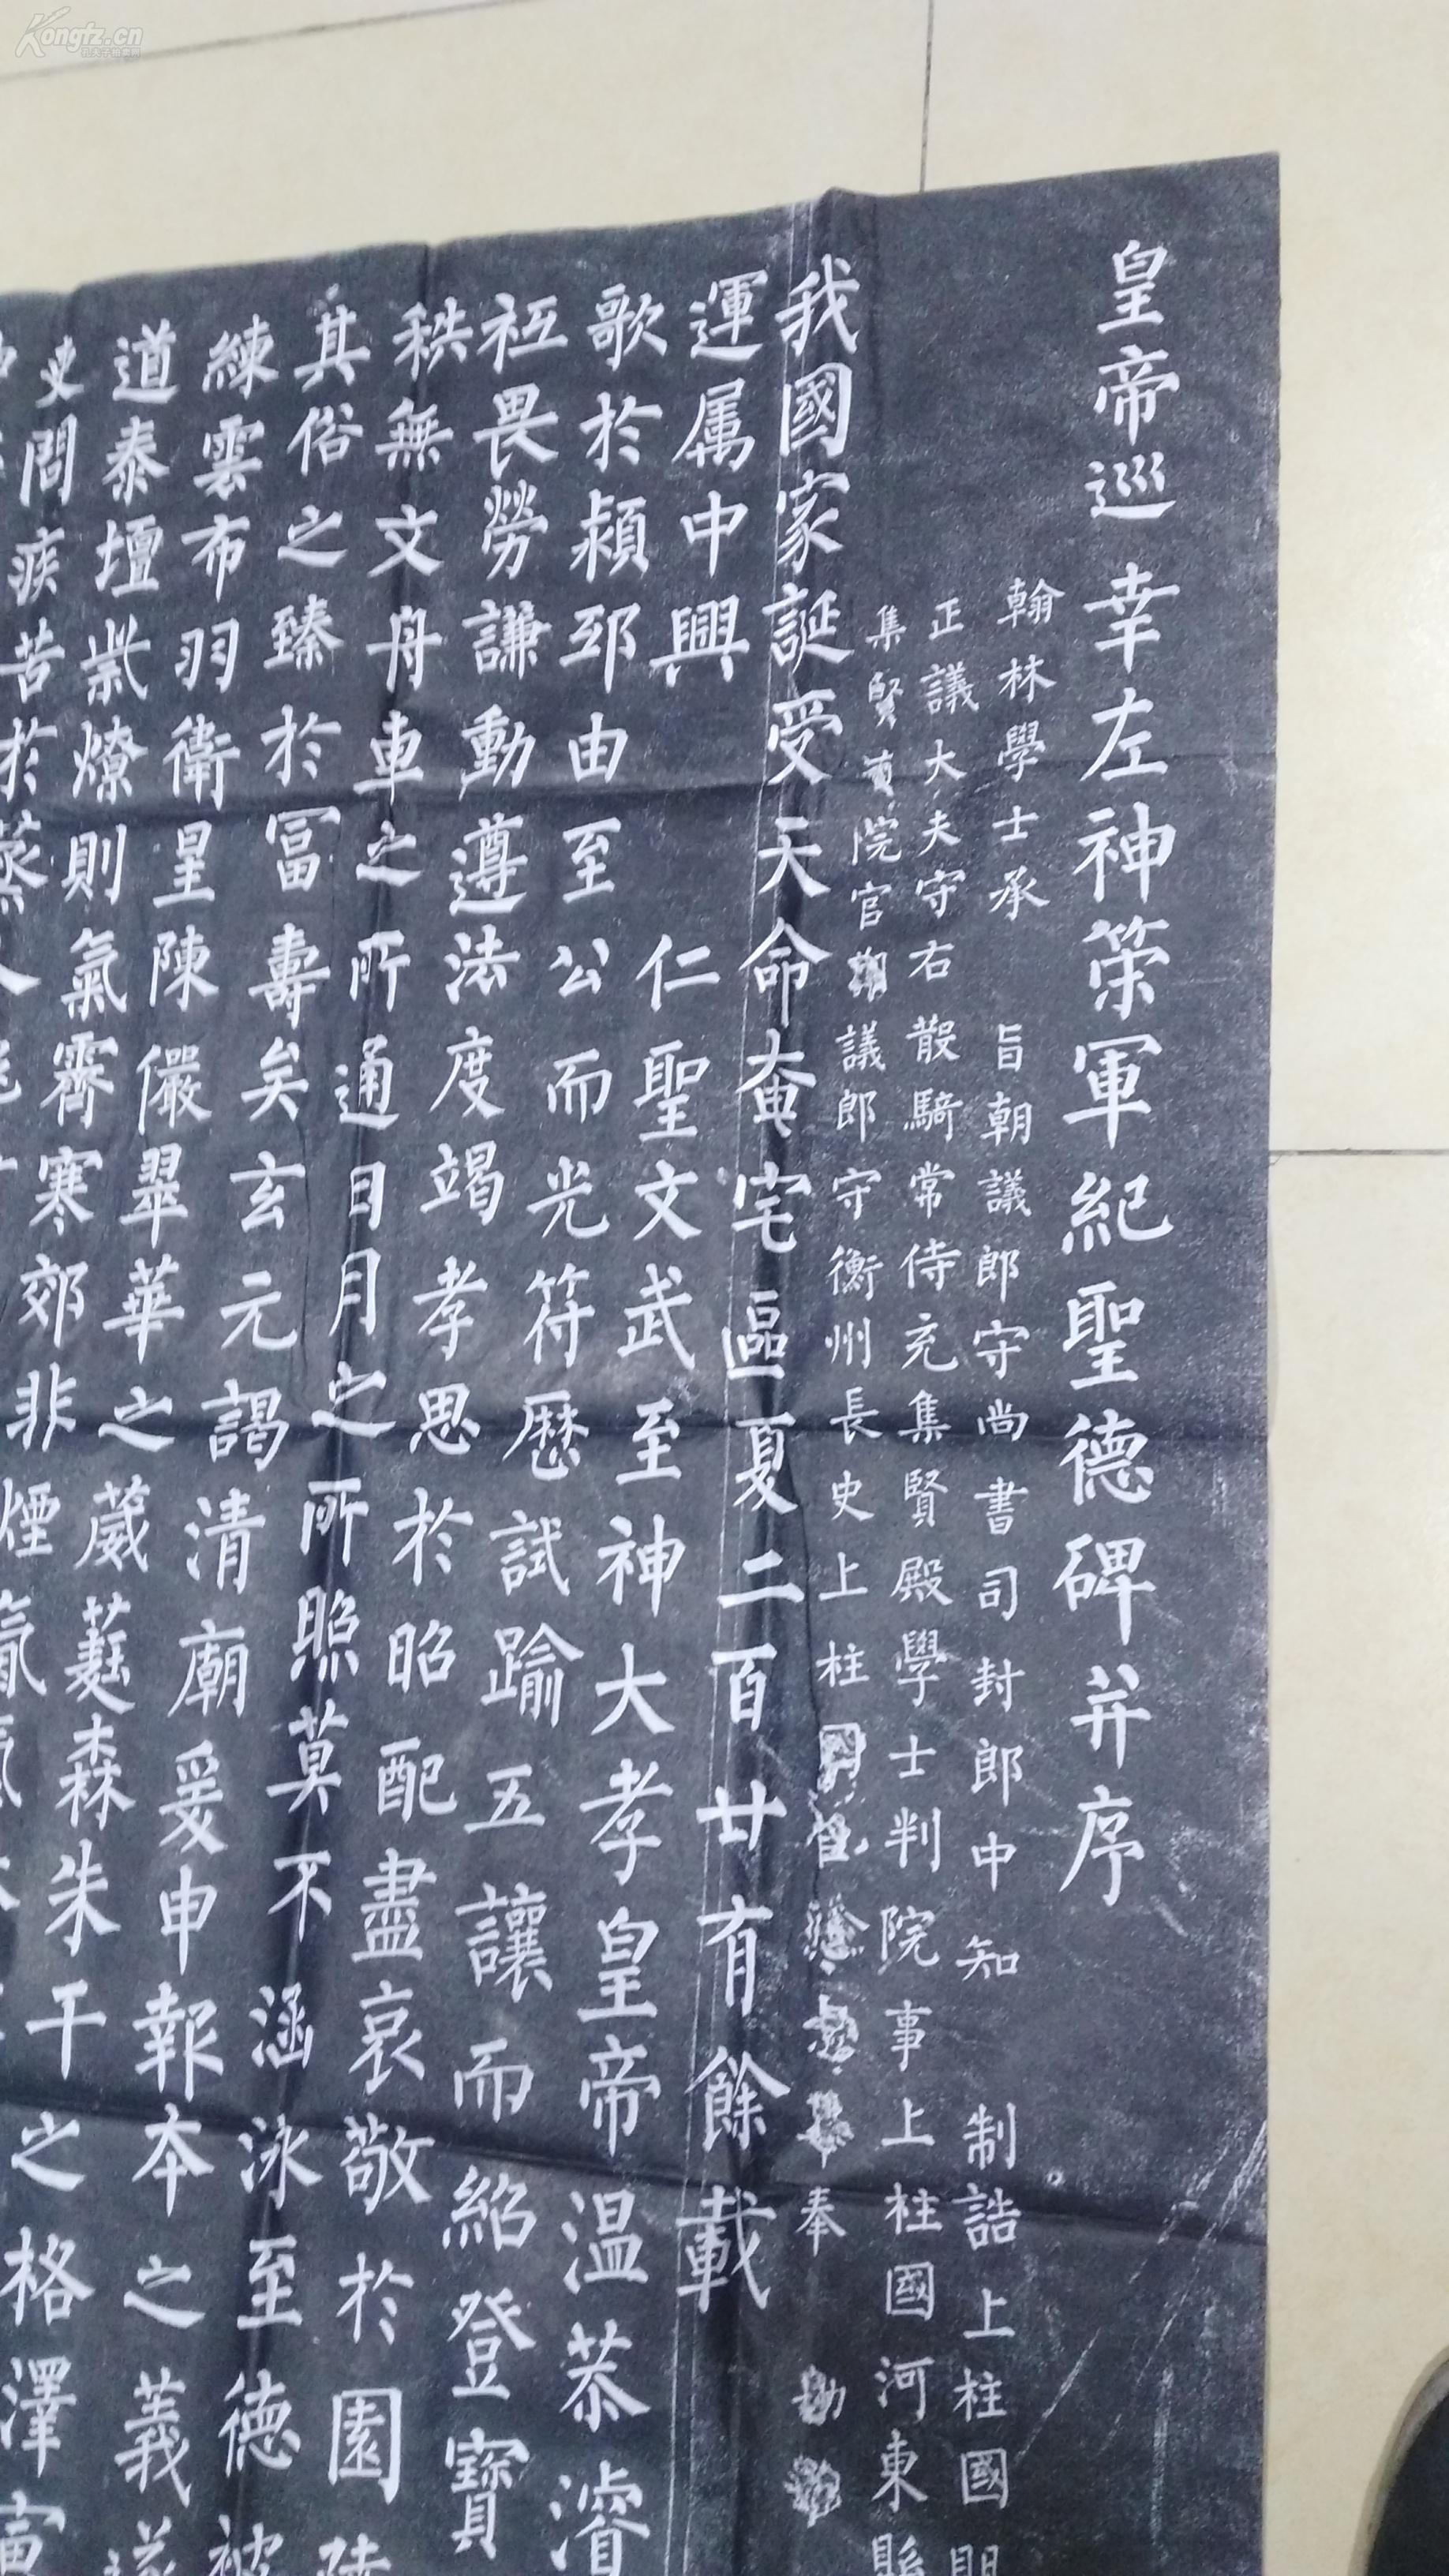 皇帝巡幸左神策軍紀聖德碑并序
翰林學士承 旨朝議郎守尚書司封郎中知 制誥上柱國
正議大夫守右散騎常侍充集賢殿學士判院事上柱國河東縣
集賢直院官朝議郎守衡州長史上柱國 奉 勅
我國家誕受天命奄宅區夏二百廿有餘載
運属中興 仁聖文武至神大孝皇帝温恭濬
歌於潁邸由至公而光符歷試踰五讓而紹登寶
祗畏勞謙動遵法度竭孝思於昭配盡哀敬於園陵
秩無文舟車之所通日月之所照莫不涵泳至德被
其俗之臻於冨壽矣玄元謁清廟爰申報本之義
練雲布羽衛星陳儼翠華之葳蕤森朱干之格澤
道泰壇紫燎則氣霽寒郊非煙氣
史問疾苦於蒸人
Kongfz.cn